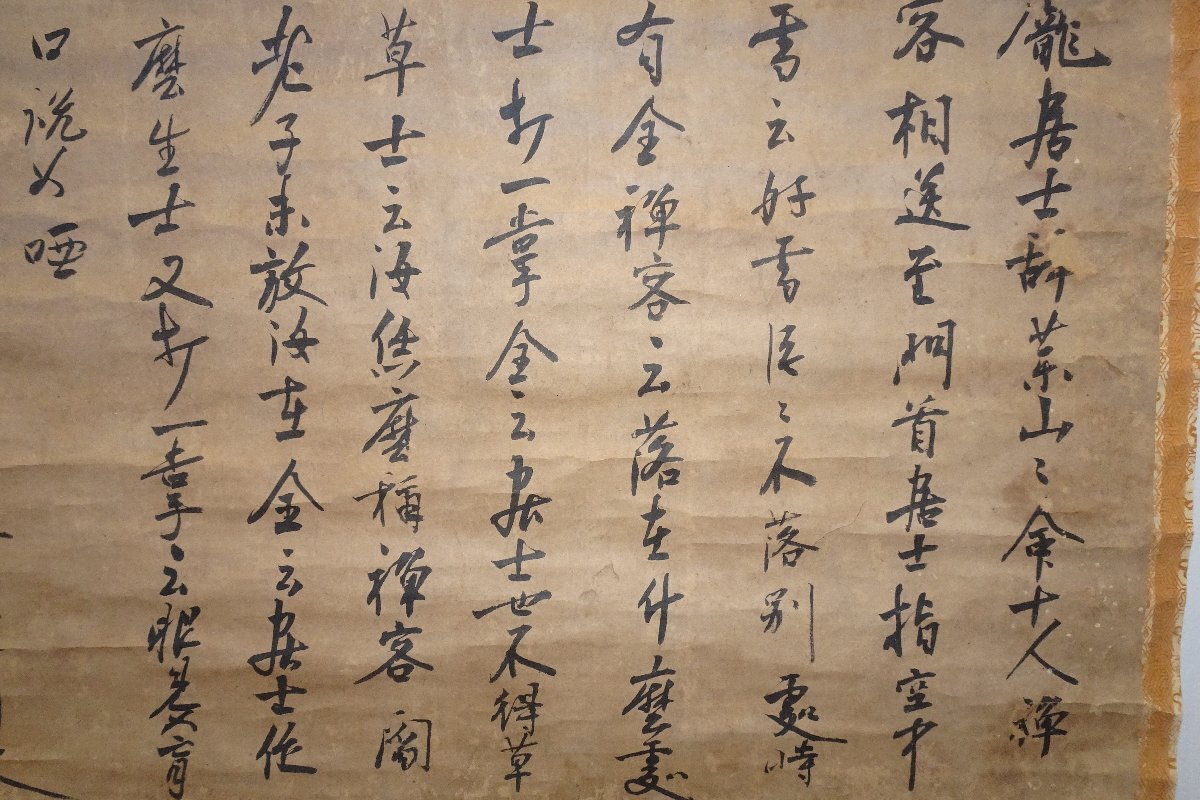 龐居士辞薬山〻命十人禅
客相送至門首居士指空中
雪云好雪片〻不落別處時
有全禅客云落在什麼處
士打一掌全云居士也不得草
草士云汝恁麼称禅客閻
老子未放汝在全云居士作
麼生士又打一掌云眼見如盲
口説如唖